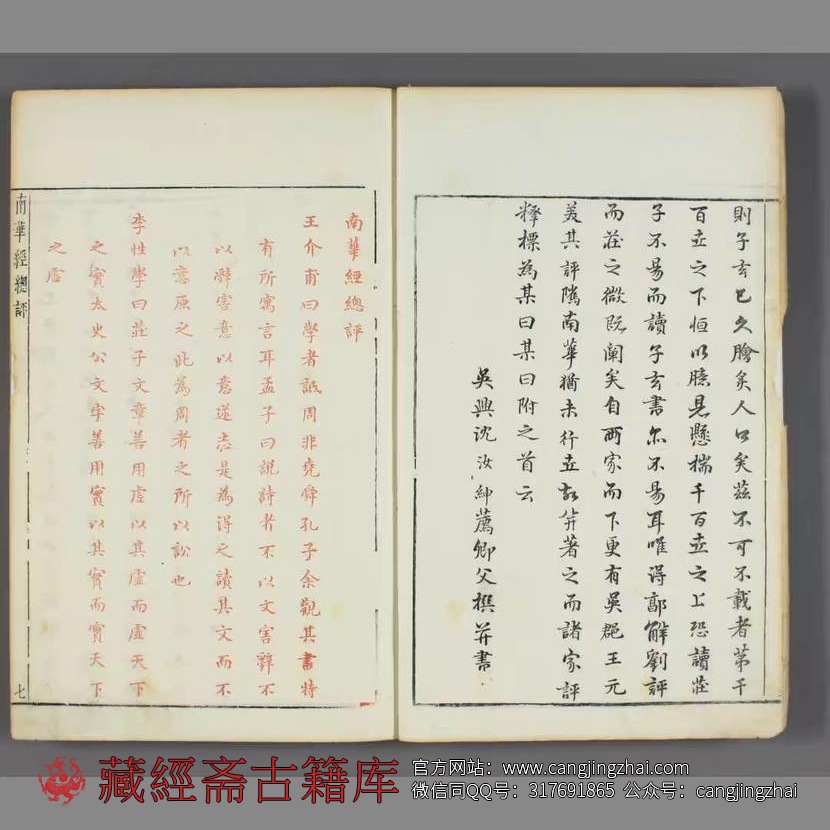 則子玄已久膾炙人口矣茲不可不載者第千
百世之下恒以臆見懸揣千百世之上恐讀莊
子不易而讀子玄書尔不易耳唯得郭解劉評
而莊之微既闡矣自兩家而下更有吳郡王元
美其評隲南華猶未行世故并著之而諸家評
釋標為某曰某曰附之首云
吳興沈汝紳薦卿父撰并書
南華經總評
王介甫曰學者詆周非堯舜孔子余觀其書特
有所寓言耳孟子曰說詩者不以文害辭不
以辭害意以意逆志是為得之讀其文而不
以意原之此為周者之所以訟也
李性學曰莊子文章善用虛以其虛而虛天下
之實太史公文字善用實以其實而實天下
之虛
南華經總評
七
藏經斋古籍库
官方网站：www.cangjingzhai.com
微信同QQ号：317691865 公众号：cangjingzhai